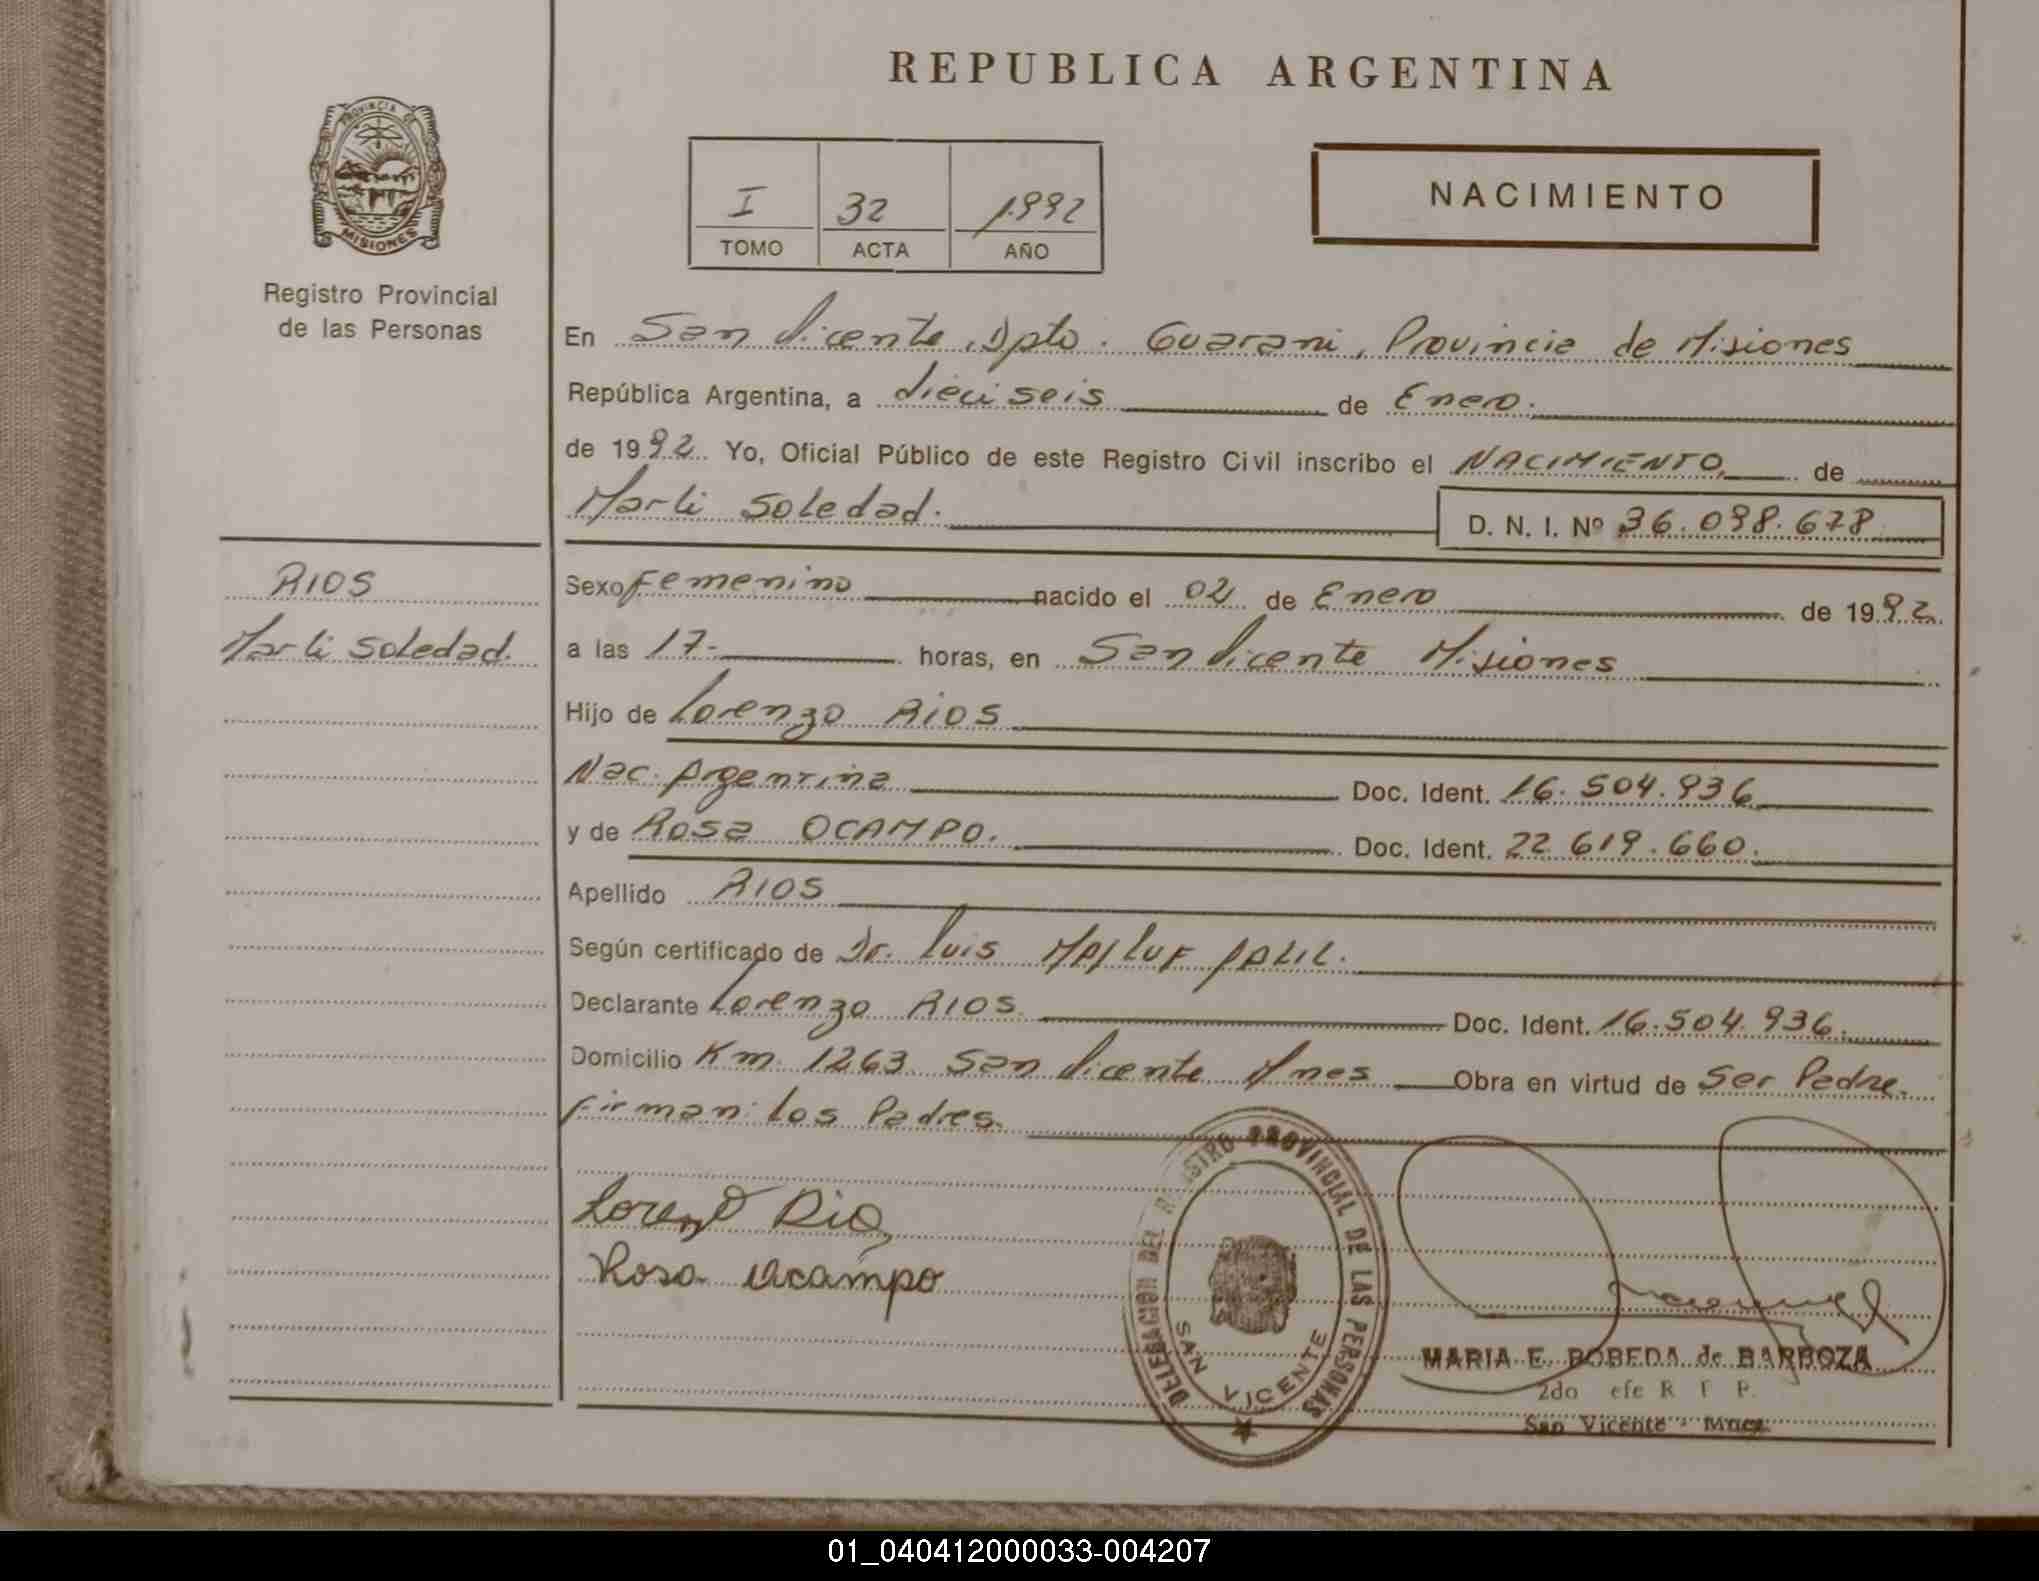 REPUBLICA ARGENTINA
PROVINCIA DE
MISIONES
Registro Provincial
de las Personas
I 32 1992
TOMO ACTA AÑO
NACIMIENTO
En San Vicente, Dpto. Guarani, Provincia de Misiones
República Argentina, a dieciseis de Enero.
de 1992. Yo, Oficial Público de este Registro Civil inscribo el NACIMIENTO, de
Marli Soledad.
D. N. I. Nº 36.098.678
RIOS
Marli Soledad.
Sexo Femenino nacido el 02 de Enero de 1992.
a las 17- horas, en San Vicente Misiones
Hijo de Lorenzo RIOS
Nac. Argentina Doc. Ident. 16.504.936
y de Rosa OCAMPO. Doc. Ident. 22 619.660.
Apellido RIOS
Según certificado de Dr. Luis MAJLUF JALIL.
Declarante Lorenzo RIOS. Doc. Ident. 16.504.936.
Domicilio Km. 1263 San Vicente Mnes Obra en virtud de Ser Padre.
Firman: los Padres.
Lorenzo Rios
Rosa Ocampo
DELEGACION DEL REGISTRO PROVINCIAL DE LAS PERSONAS
SAN VICENTE
MARIA E. BOBEDA de BARBOZA
2do efe R P.
San Vicente - Mnes.
01_040412000033-004207